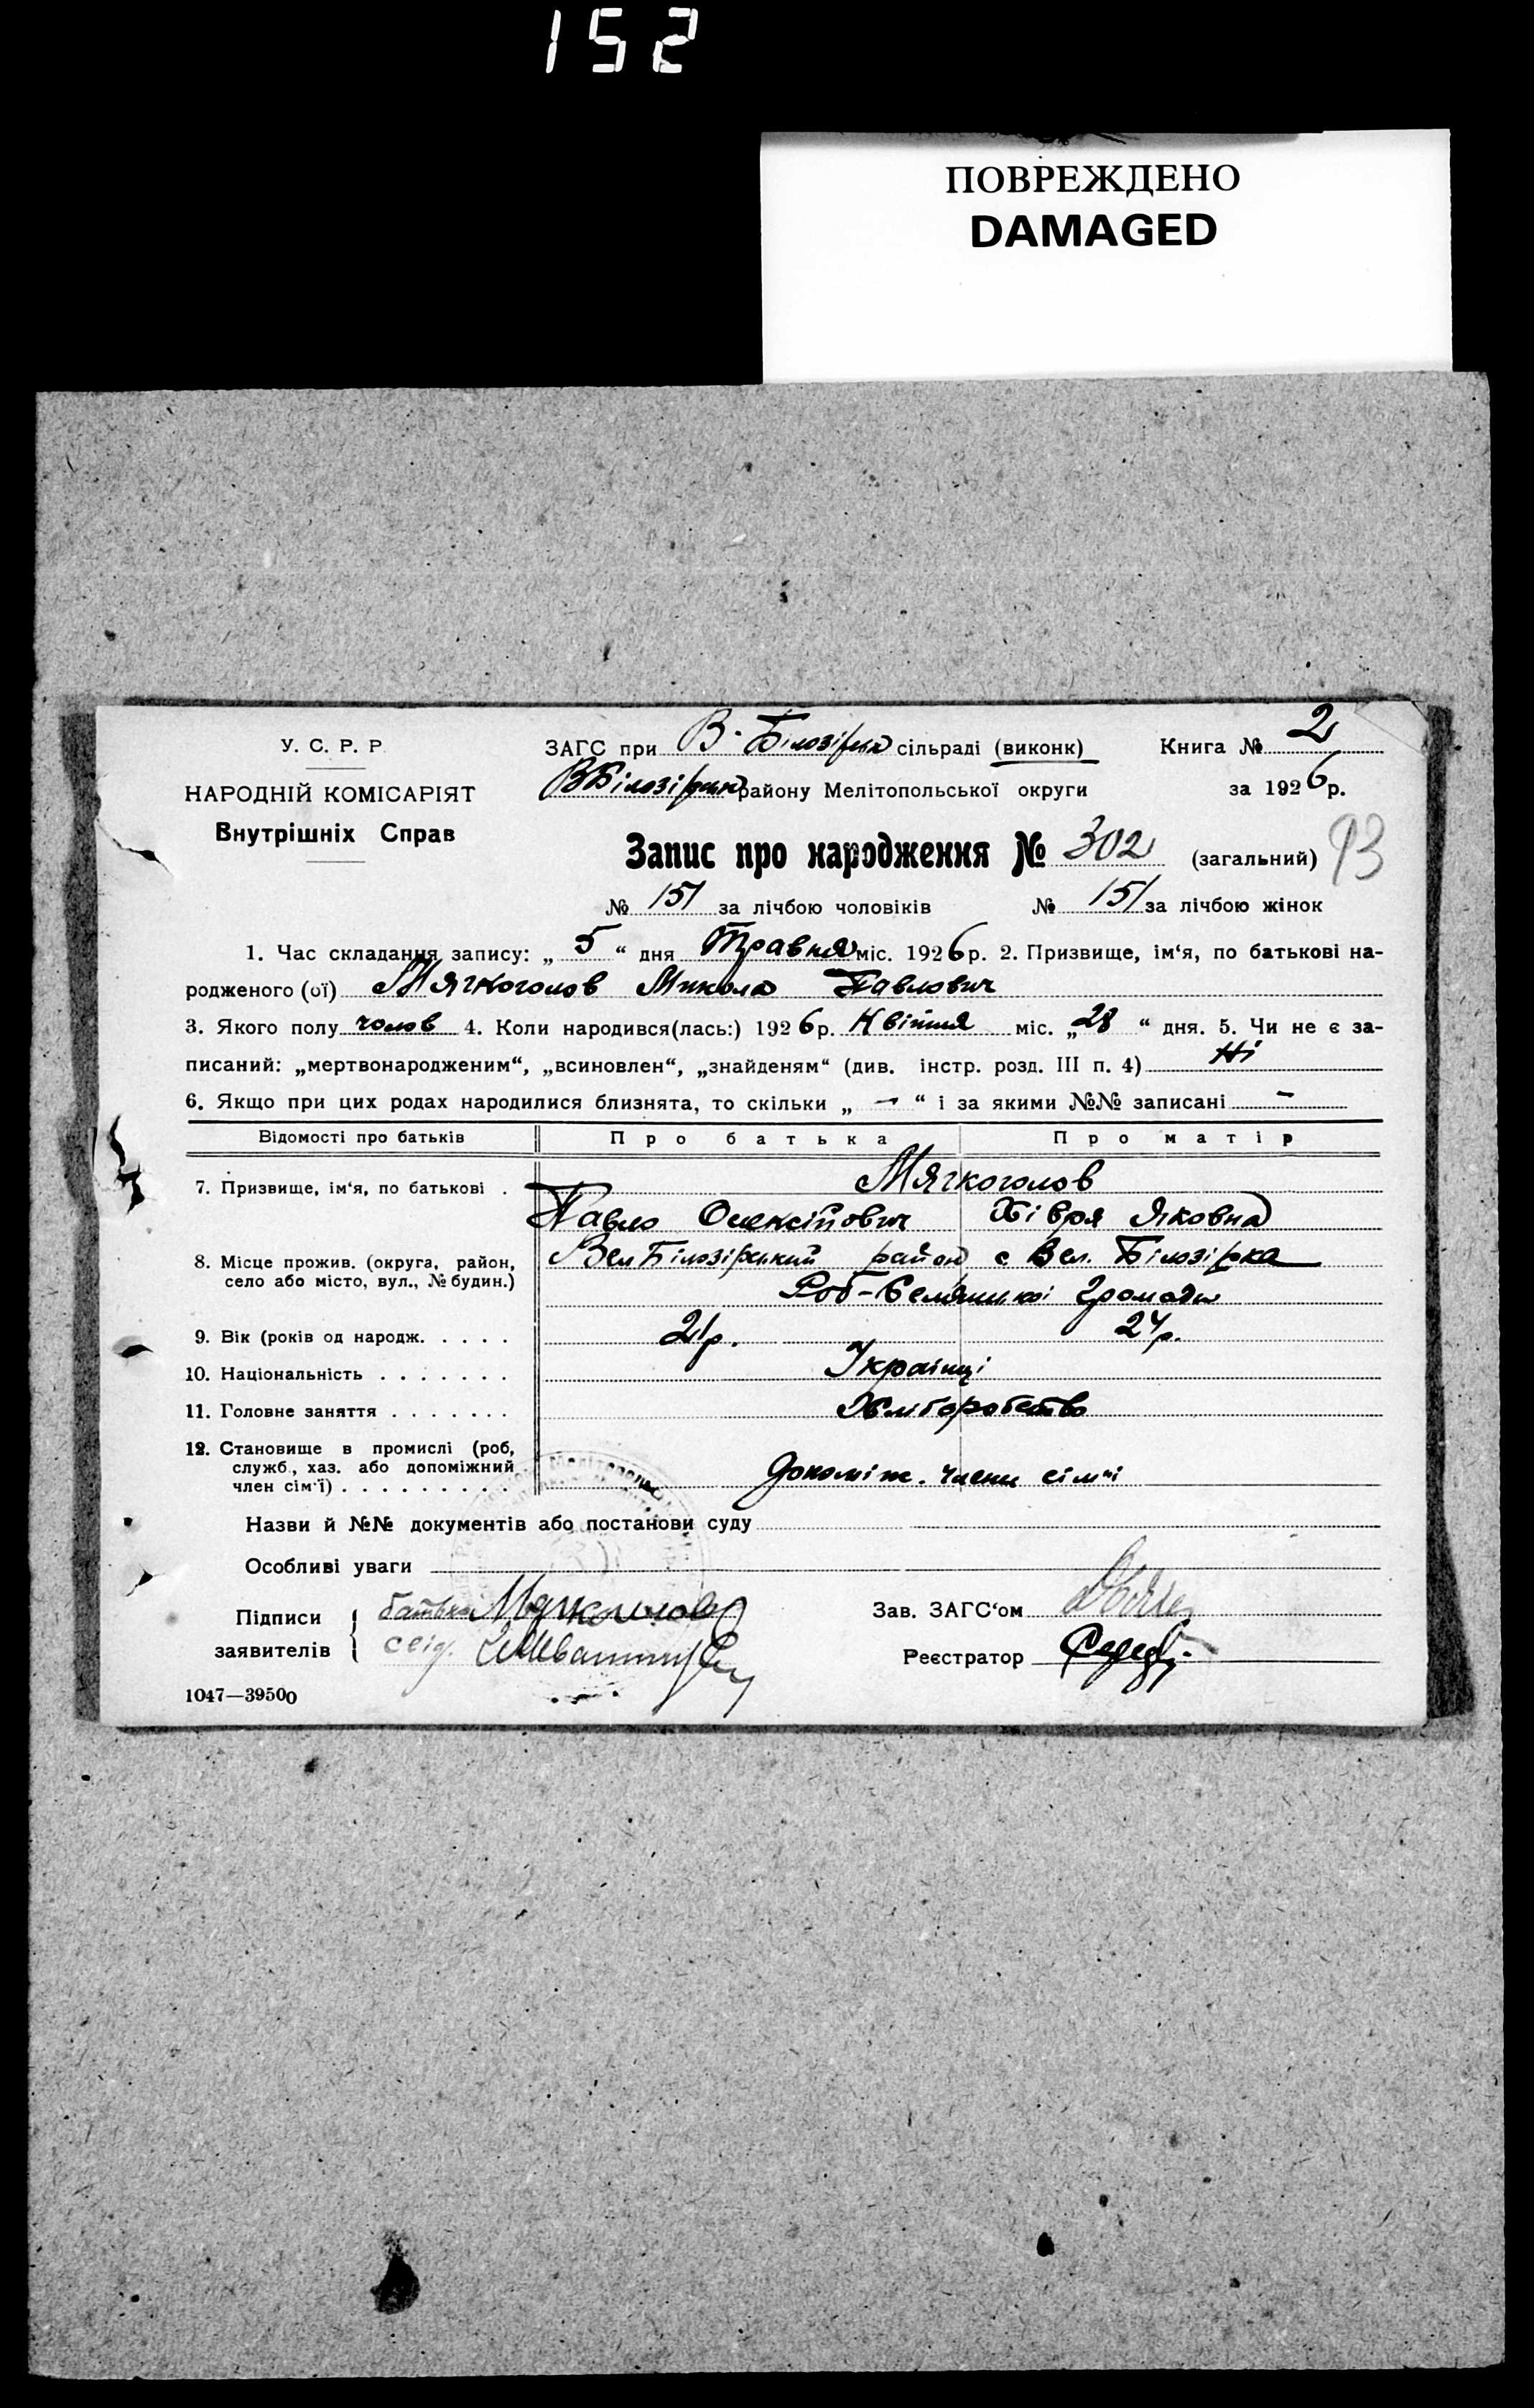 152
ПОВРЕЖДЕНО
DAMAGED
У. С. Р. Р.
НАРОДНІЙ КОМІСАРІЯТ
Внутрішніх Справ
ЗАГС при В-Білозірськ сільраді (виконк)
Книга № 2
ВБілозірськ району Мелітопольської округи
за 1926 р.
Запис про народження № 302 (загальний) 93
№ 151 за лічбою чоловіків № 151 за лічбою жінок
1. Час складання запису: „ 5 “ дня Травня міс. 1926 р. 2. Призвище, ім‘я, по батькові на-
родженого (ої) Мягкоголов Микола Павлович
3. Якого полу чолов 4. Коли народився(лась:) 1926 р. Квітня міс. „ 28 “ дня. 5. Чи не є за-
писаний: „мертвонародженим“, „всиновлен“, „знайденям“ (див. інстр. розд. III п. 4) Ні
6. Якщо при цих родах народилися близнята, то скільки „ — “ і за якими №№ записані —
Відомості про батьків Про батька Про матір
7. Призвище, ім‘я, по батькові . Мягкоголов
Павло Олексійович Хівря Яковна
8. Місце прожив. (округа, район, Вел Білозірський район с Вел. Білозірка
село або місто, вул., № будин.)
громади
9. Вік (років од народж. . . . . 21 р. 24 р.
10. Національність . . . . . . . Українці
11. Головне заняття . . . . . . . Хліборобство
12. Становище в промислі (роб,
служб., хаз. або допоміжний
член сім‘ї) . . . . . . . . . допоміж. члени сім"ї
Назви й №№ документів або постанови суду
Особливі уваги
Підписи
заявителів
батько Мягкоголов
свід.
Зав. ЗАГС‘ом
Реєстратор
1047—39500